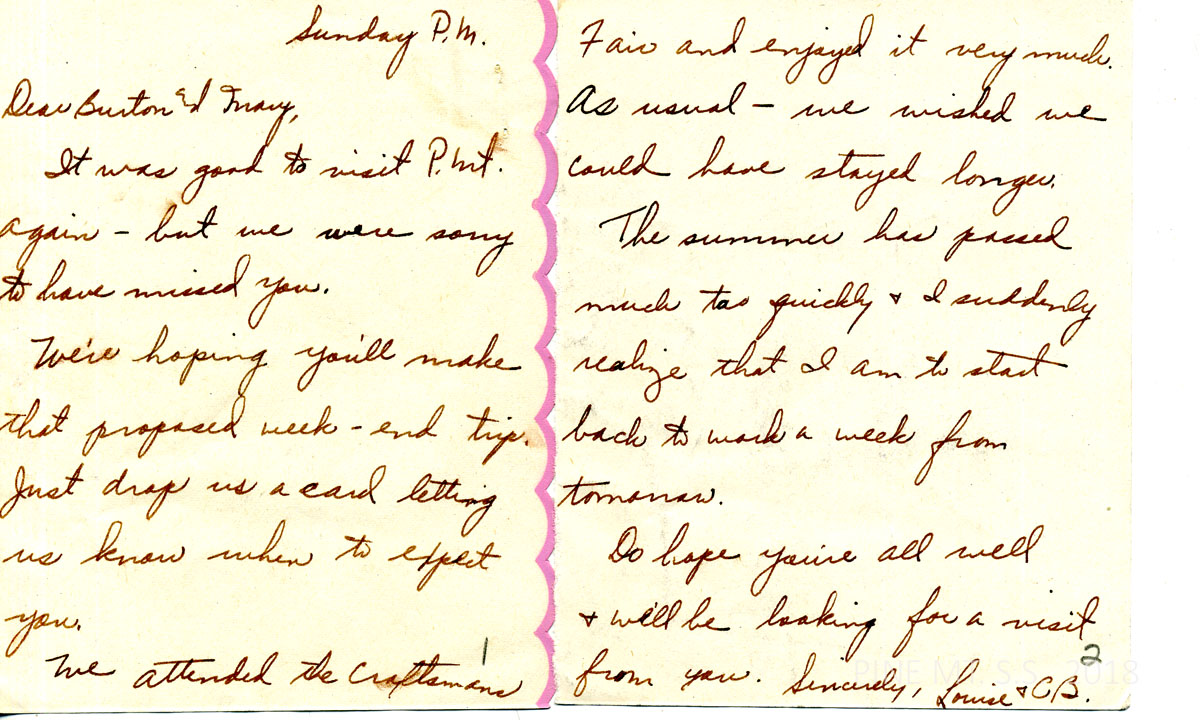 Sunday P.M.
Dear Burton & Mary,
It was good to visit P. Mt.
again - but we were sorry
to have missed you.
We're hoping you'll make
that proposed week-end trip.
Just drop us a card letting
us know when to expect
you.
We attended the Craftsmans
1
Fair and enjoyed it very much.
As usual - we wished we
could have stayed longer.
The summer has passed
much too quickly & I suddenly
realize that I am to start
back to work a week from
tomorrow.
Do hope you're all well
& we'll be looking for a visit
from you.
Sincerely, Louise & C.B.
2
PINE MT. S.S. 2018